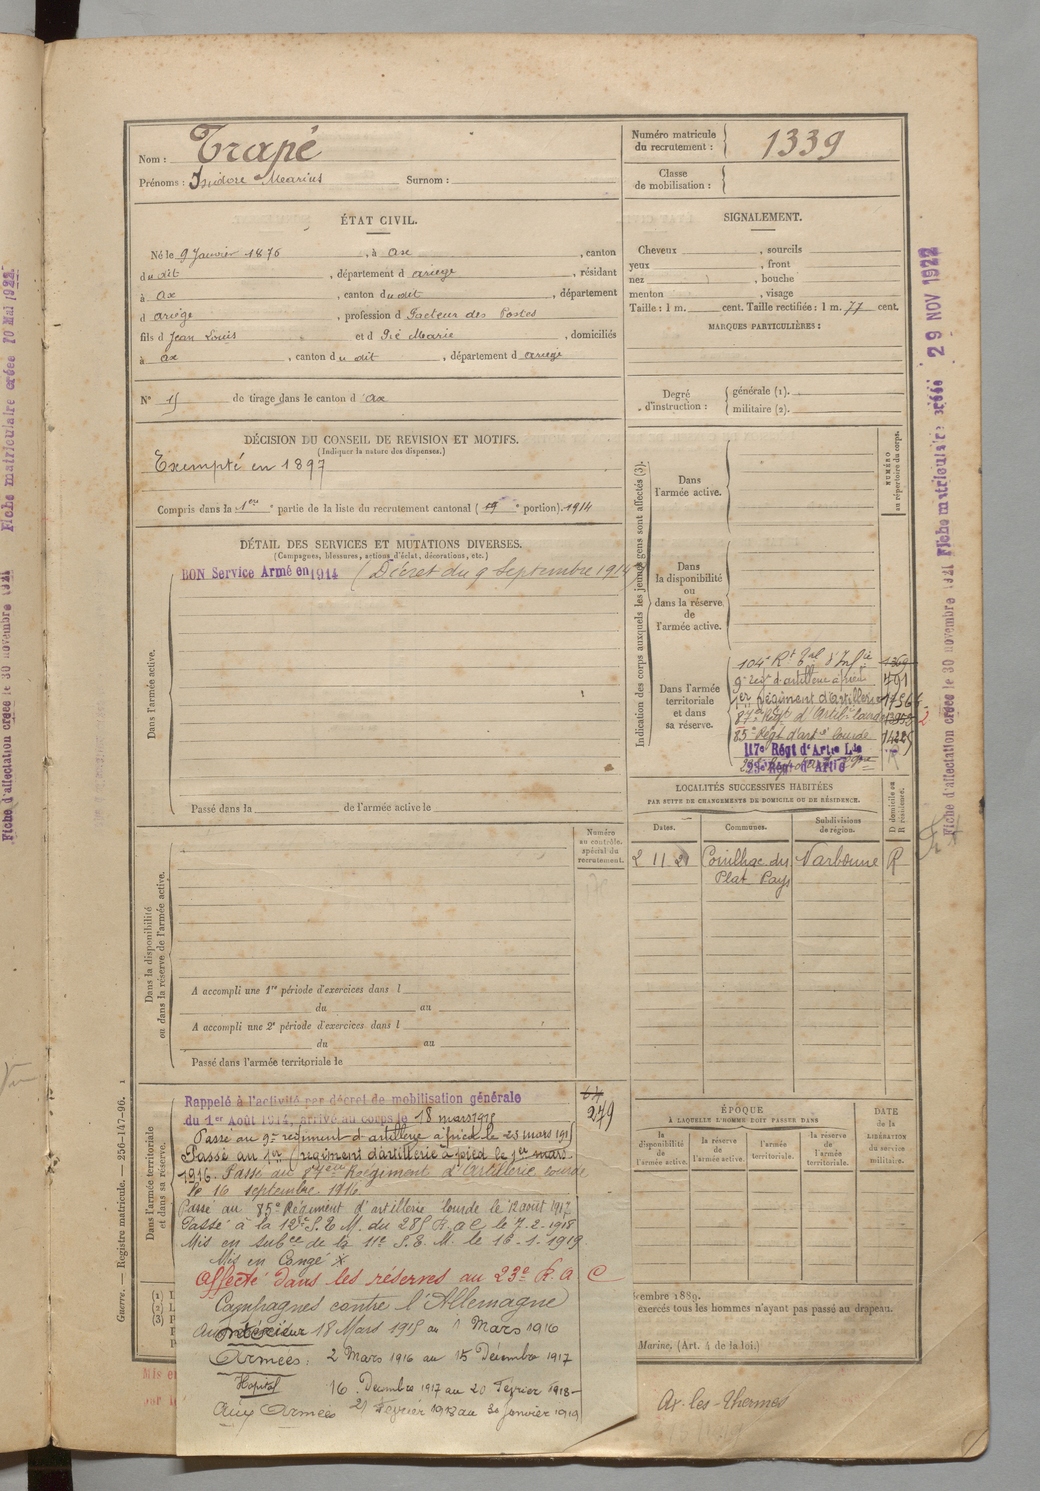 Nom : Trapé
Prénoms : Isidore Marius Surnom :
Numéro matricule
du recrutement : 1339
Classe
de mobilisation :
ÉTAT CIVIL.
Né le 9 Janvier 1876, à Ax, canton
du dit, département d'Ariège, résidant
à Ax, canton du dit, département
d'Ariège, profession d Facteur des Postes
fils d Jean Louis et d Pic Marie, domiciliés
à Ax, canton du dit, département d'Ariège
N° 15 de tirage dans le canton d'Ax
SIGNALEMENT.
Cheveux , sourcils
yeux , front
nez , bouche
menton , visage
Taille : 1 m. cent. Taille rectifiée : 1 m. 77 cent.
MARQUES PARTICULIÈRES :
Degré
d'instruction :
générale (1).
militaire (2).
DÉCISION DU CONSEIL DE REVISION ET MOTIFS.
(Indiquer la nature des dispenses.)
Exempté en 1897
Compris dans la 1ere partie de la liste du recrutement cantonal ( e portion). 1914
DÉTAIL DES SERVICES ET MUTATIONS DIVERSES.
(Campagnes, blessures, actions d'éclat, décorations, etc.)
BON Service Armé en 1914 (Décret du 9 Septembre 1914)
Dans l'armée active.
Passé dans la de l'armée active le
Indication des corps auxquels les jeunes gens sont affectés (3).
NUMÉRO
au répertoire du corps.
Dans
l'armée active.
Dans
la disponibilité
ou
dans la réserve
de
l'armée active.
Dans l'armée
territoriale
et dans
sa réserve.
104e Rt Tal d'Infie
9e régt d'artillerie à pied 491
1er Régiment d'Artillerie
87e Régt d'Artil. lourde
85e Régt d'artie lourde
117e Régt d'Artie Lde
23e Régt d'Artie
LOCALITÉS SUCCESSIVES HABITÉES
PAR SUITE DE CHANGEMENTS DE DOMICILE OU DE RÉSIDENCE.
Dates. Communes. Subdivisions
de région.
D domicile ou
R résidence.
2 11. 21 Pouilhac du
Plat Pays Narbonne R
Numéro
au contrôle
spécial du
recrutement.
Dans la disponibilité
ou dans la réserve de l'armée active.
A accompli une 1re période d'exercices dans l
du au
A accompli une 2e période d'exercices dans l
du au
Passé dans l'armée territoriale le
Dans l'armée territoriale
et dans sa réserve.
Rappelé à l'activité par décret de mobilisation générale
du 1er Août 1914, arrivé au corps le 18 mars 1915
64
279
Passé au 9e régiment d'artillerie à pied le 23 mars 1915
Passé au 1er régiment d'artillerie à pied le 1er mars
1916. Passé au 87ème Régiment d'Artillerie lourde
le 16 septembre 1916.
Passé au 85e Régiment d'artillerie lourde le 12 août 1917
Passé à la 12e S. T. M. du 285 R. a C le 7-2-1918
Mis en subce de la 11e S. T. M. le 18-1-1919.
Mis en Congé
Affecté dans les réserves au 23e R. A C
Campagnes contre l'Allemagne
Intérieur 18 Mars 1915 au 1 Mars 1916
Armées : 2 Mars 1916 au 15 Décembre 1917
Hopital 16 Décembre 1917 au 20 Février 1918
Aux Armées 21 Février 1918 au 30 Janvier 1919
ÉPOQUE
À LAQUELLE L'HOMME DOIT PASSER DANS
la
disponibilité
de
l'armée active.
la réserve
de
l'armée active.
l'armée
territoriale.
la réserve
de
l'armée
territoriale.
DATE
de la
LIBÉRATION
du service
militaire.
écembre 1889.
exercés tous les hommes n'ayant pas passé au drapeau.
Marine, (Art. 4 de la loi.)
Ax-les-Thermes
Guerre. — Registre matricule. — 256-147-96.
Fiche d'affectation créée le 30 novembre 1921 Fiche matriculaire créée 29 NOV 1922
Fiche d'affectation créée le 30 novembre 1921 Fiche matriculaire créée 10 Mai 1922